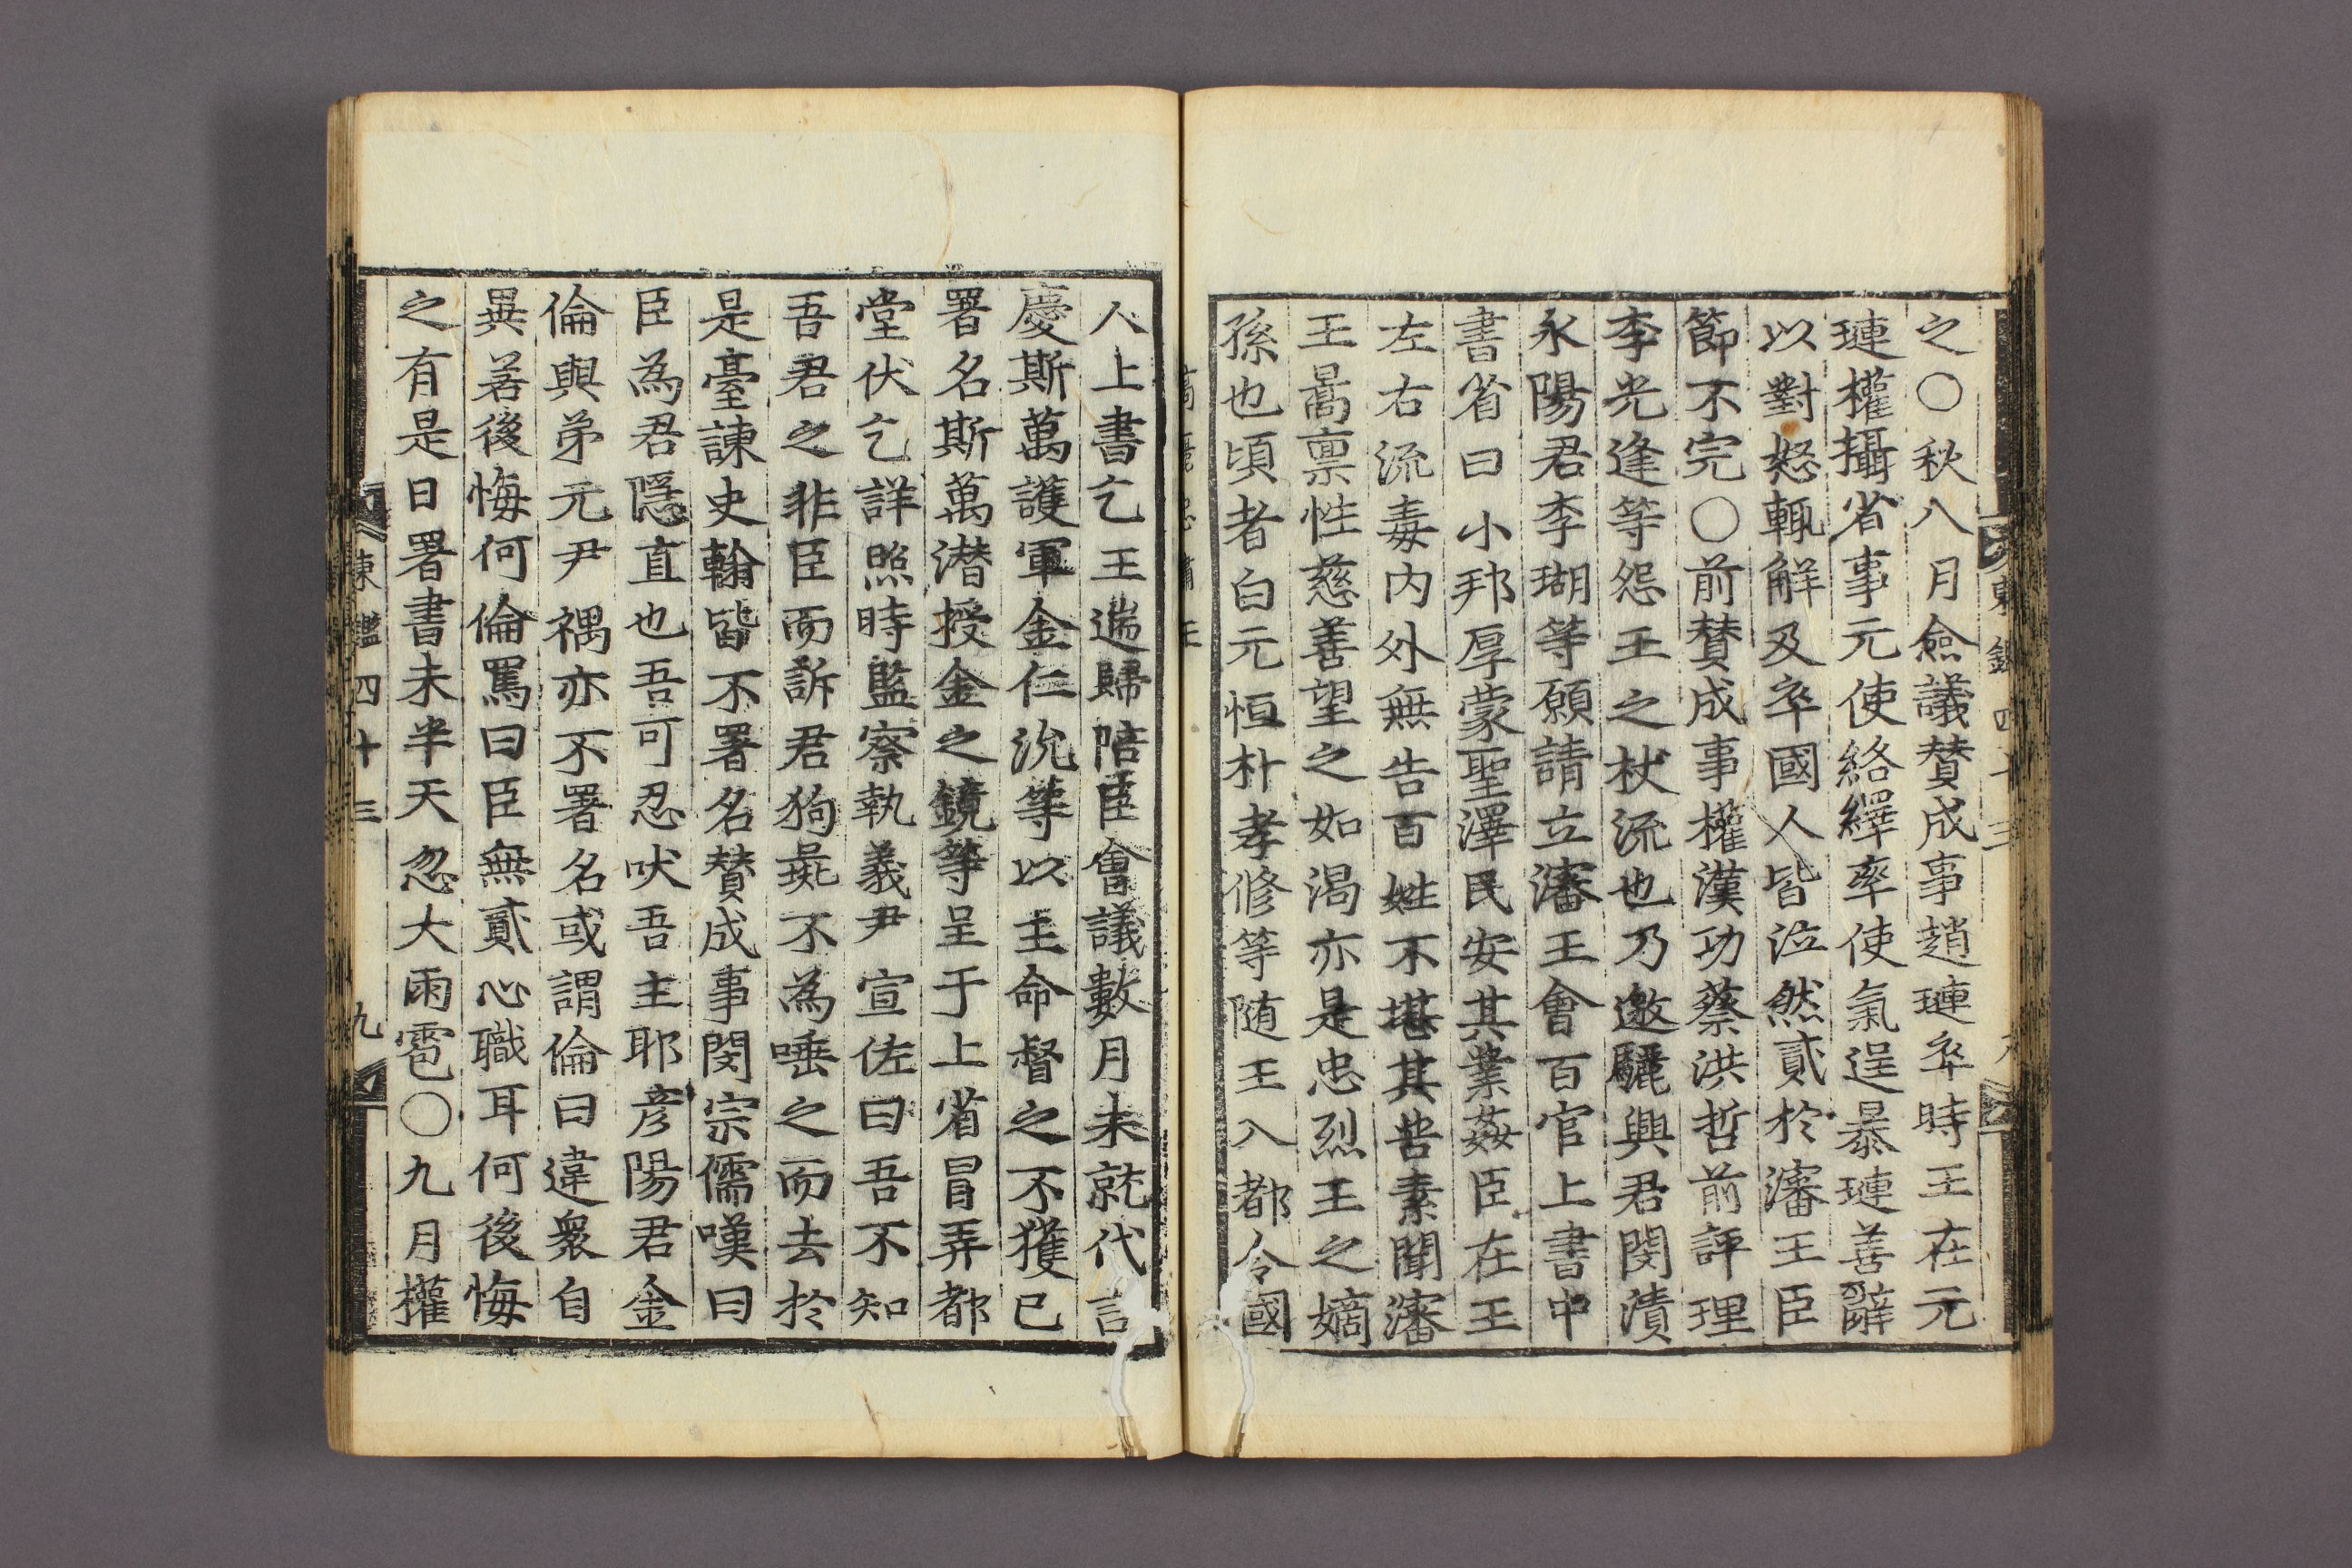 之○秋八月僉議賛成事趙璉卒時王在元
璉權攝省事元使絡繹率使氣逞暴璉善辭
以對怒輒解及卒國人皆泣然貳於瀋王臣
節不完○前賛成事權漢功蔡洪哲前評理
李光逢等怨王之杖流也乃邀驪興君閔漬
永陽君李瑚等願請立瀋王會百官上書中
書省曰小邦厚蒙聖澤民安其業姦臣在王
左右流毒内外無告百姓不堪其苦素聞瀋
王暠禀性慈善望之如渴亦是忠烈王之嫡
孫也頃者白元恒朴孝修等随王入都令國
人上書乞王遄歸陪臣會議數月未就代言
慶斯萬護軍金仁沇等以主命督之不獲已
署名斯萬潜授金之鏡等呈于上省冒弄都
堂伏乞詳照時監察執義尹宣佐曰吾不知
吾君之非臣而訴君狗彘不為唾之而去於
是臺諫史翰皆不署名賛成事閔宗儒嘆曰
臣為君隱直也吾可忍吠吾主耶彦陽君金
倫與弟元尹禑亦不署名或謂倫曰違衆自
異若後悔何倫罵曰臣無貳心職耳何後悔
之有是日署書未半天忽大雨雹○九月權
東鑑四十三 九